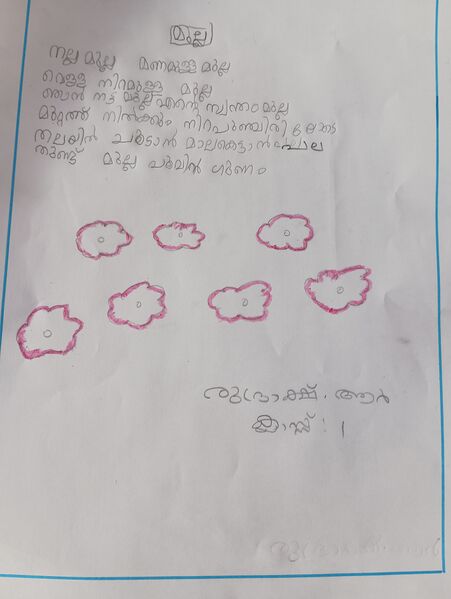 മുല്ല
നല്ല മുല്ല മണമുള്ള മുല്ല
വെള്ള നിറമുള്ള മുല്ല
ഞാൻ നട്ട മുല്ല എന്റെ സ്വന്തം മുല്ല
മുറ്റത്ത് നിൽക്കും നിറപുഞ്ചിരി
തലയിൽ ചൂടാൻ മാലകെട്ടാൻ
മുല്ല പൂവിൻ ഗുണം
രുദ്രാക്ഷ്. ആർ
ക്ലാസ്സ് : 1